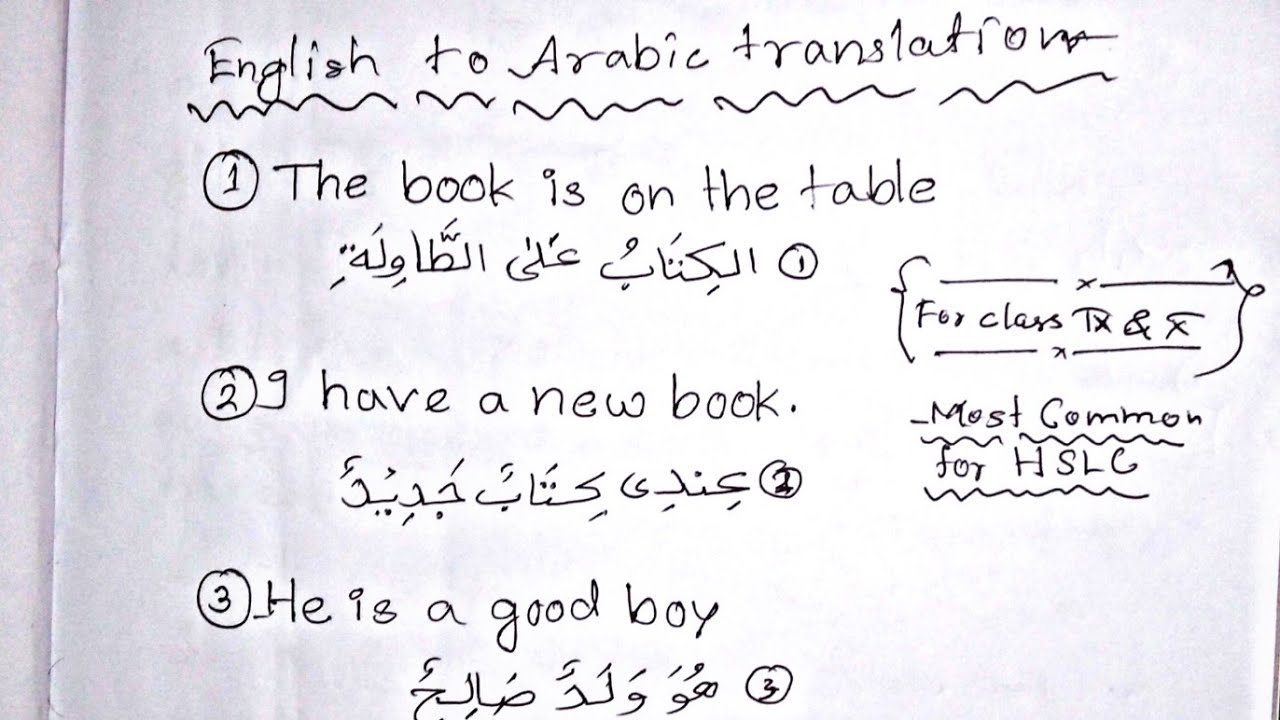 English to Arabic translation
① The book is on the table
① الكِتَابُ عَلىٰ الطَّاوِلَةِ
② I have a new book.
② عِندِى كِتَابٌ جَدِيْدٌ
③ He is a good boy
③ هُوَ وَلَدٌ صَالِحٌ
For class IX & X
Most Common
for HSLC